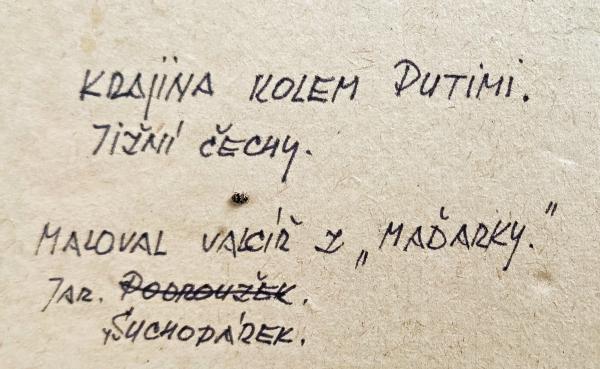 KRAJINA KOLEM PUTIMI.
JIŽNÍ ČECHY.
MALOVAL VALCÍŘ Z „MAĎARKY.”
JAR. PODROUŽEK.
SUCHOPÁREK.